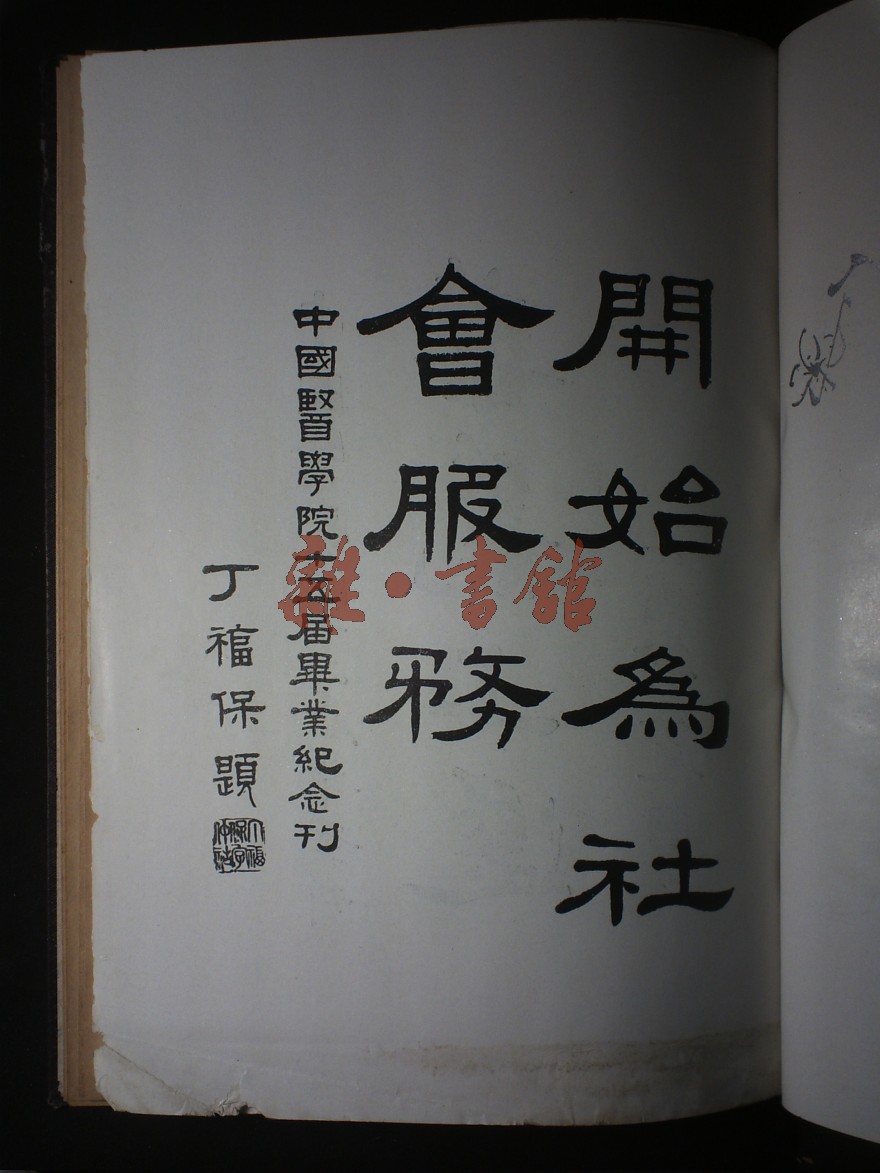 開始為社
會服務
中國醫學院十五届畢業紀念刊
丁福保題
雜·書館